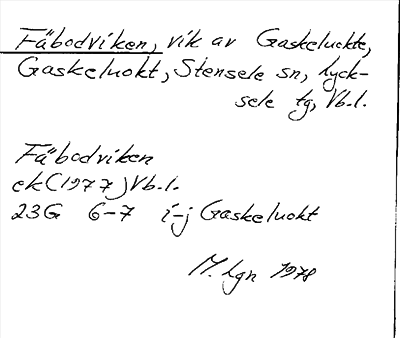 Fäbodviken, vik av Gaskeluckte,
Gaskeluokt, Stensele sn, Lyck-
sele tg, Vb.l.
Fäbodviken
ek (1977) Vb.l.
23G 6-7 i-j Gaskeluokt
M. Lgn 1978